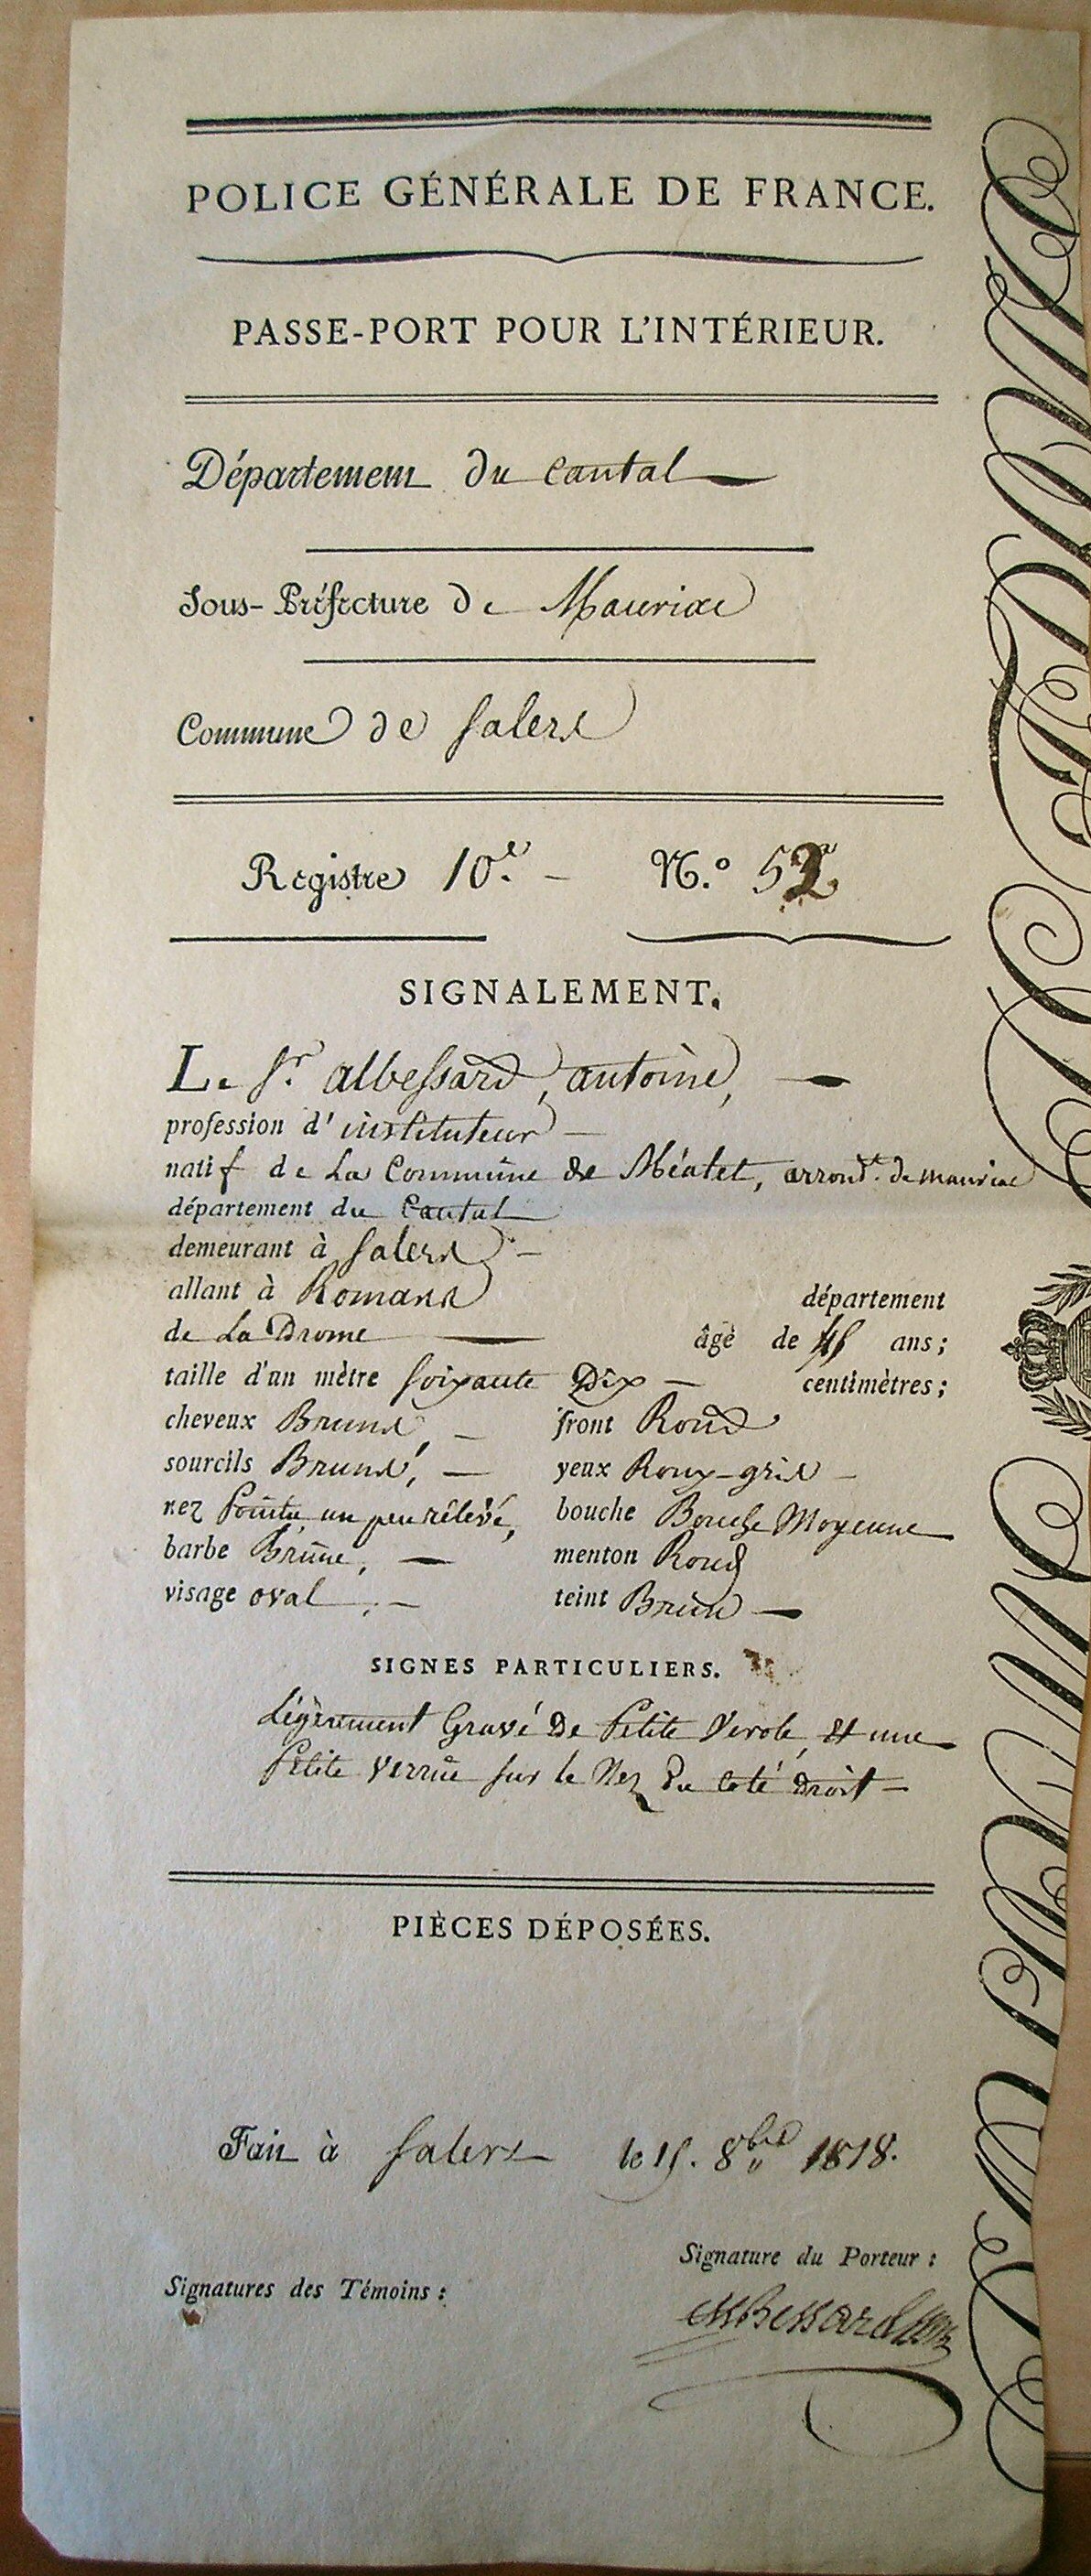 POLICE GÉNÉRALE DE FRANCE.
PASSE-PORT POUR L'INTÉRIEUR.
Département du Cantal
Sous-Préfecture de Mauriac
Commune de Salers
Registre 10.e N.o 52
SIGNALEMENT.
Le Sr. albessard, antoine,
profession d'instituteur
natif de La Commune de Méalet, arrondt. de mauriac
département du Cantal
demeurant à Salers
allant à Romans département
de La Drome âgé de 45 ans;
taille d'un mètre soixante Dix centimètres;
cheveux Bruns, front Rond
sourcils Bruns, yeux Roux-gris
nez Pointu, un peu rélévé, bouche Bouche Moyenne
barbe Brune, menton Rond
visage oval teint Brun
SIGNES PARTICULIERS.
Légèrement Gravé De Petite Verole, Et une
Petite Verrue sur le Nez Du coté Droit
PIÈCES DÉPOSÉES.
Fait à Salers le 15. 8bre 1818.
Signature du Porteur :
Signatures des Témoins :